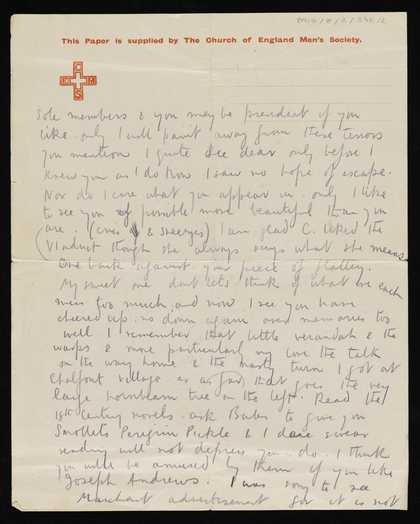 This Paper is supplied by The Church of England Men's Society.
C E M S
Sole members & you may be president if you
like only I will paint away from these tenors
you mention I quite see dear only before I
knew you as I do now I saw no hope of escape.
Nor do I care what you appear in only I like
to see you if possible more beautiful than you
are. I am glad C. liked the
Viaduct though she always says what she means
One back against your piece of flattery.
My sweet one dont lets think of what we each
miss too much and now I see you have
cheered up no down again over memories too
well I remember that little verandah & the
wasps & more particularly my love the talk
on the way home & the nasty turn I got at
Chalfont village as as far that goes the very
large hornbeam tree on the left. Read the
18th Century novels ask Baba to give you
Smollets Peregrin Pickle & I dare swear
reading will not depress you do. I think
you will be amused by them if you like
Joseph Andrews. I was sorry to see
Marchant advertisement for it is not